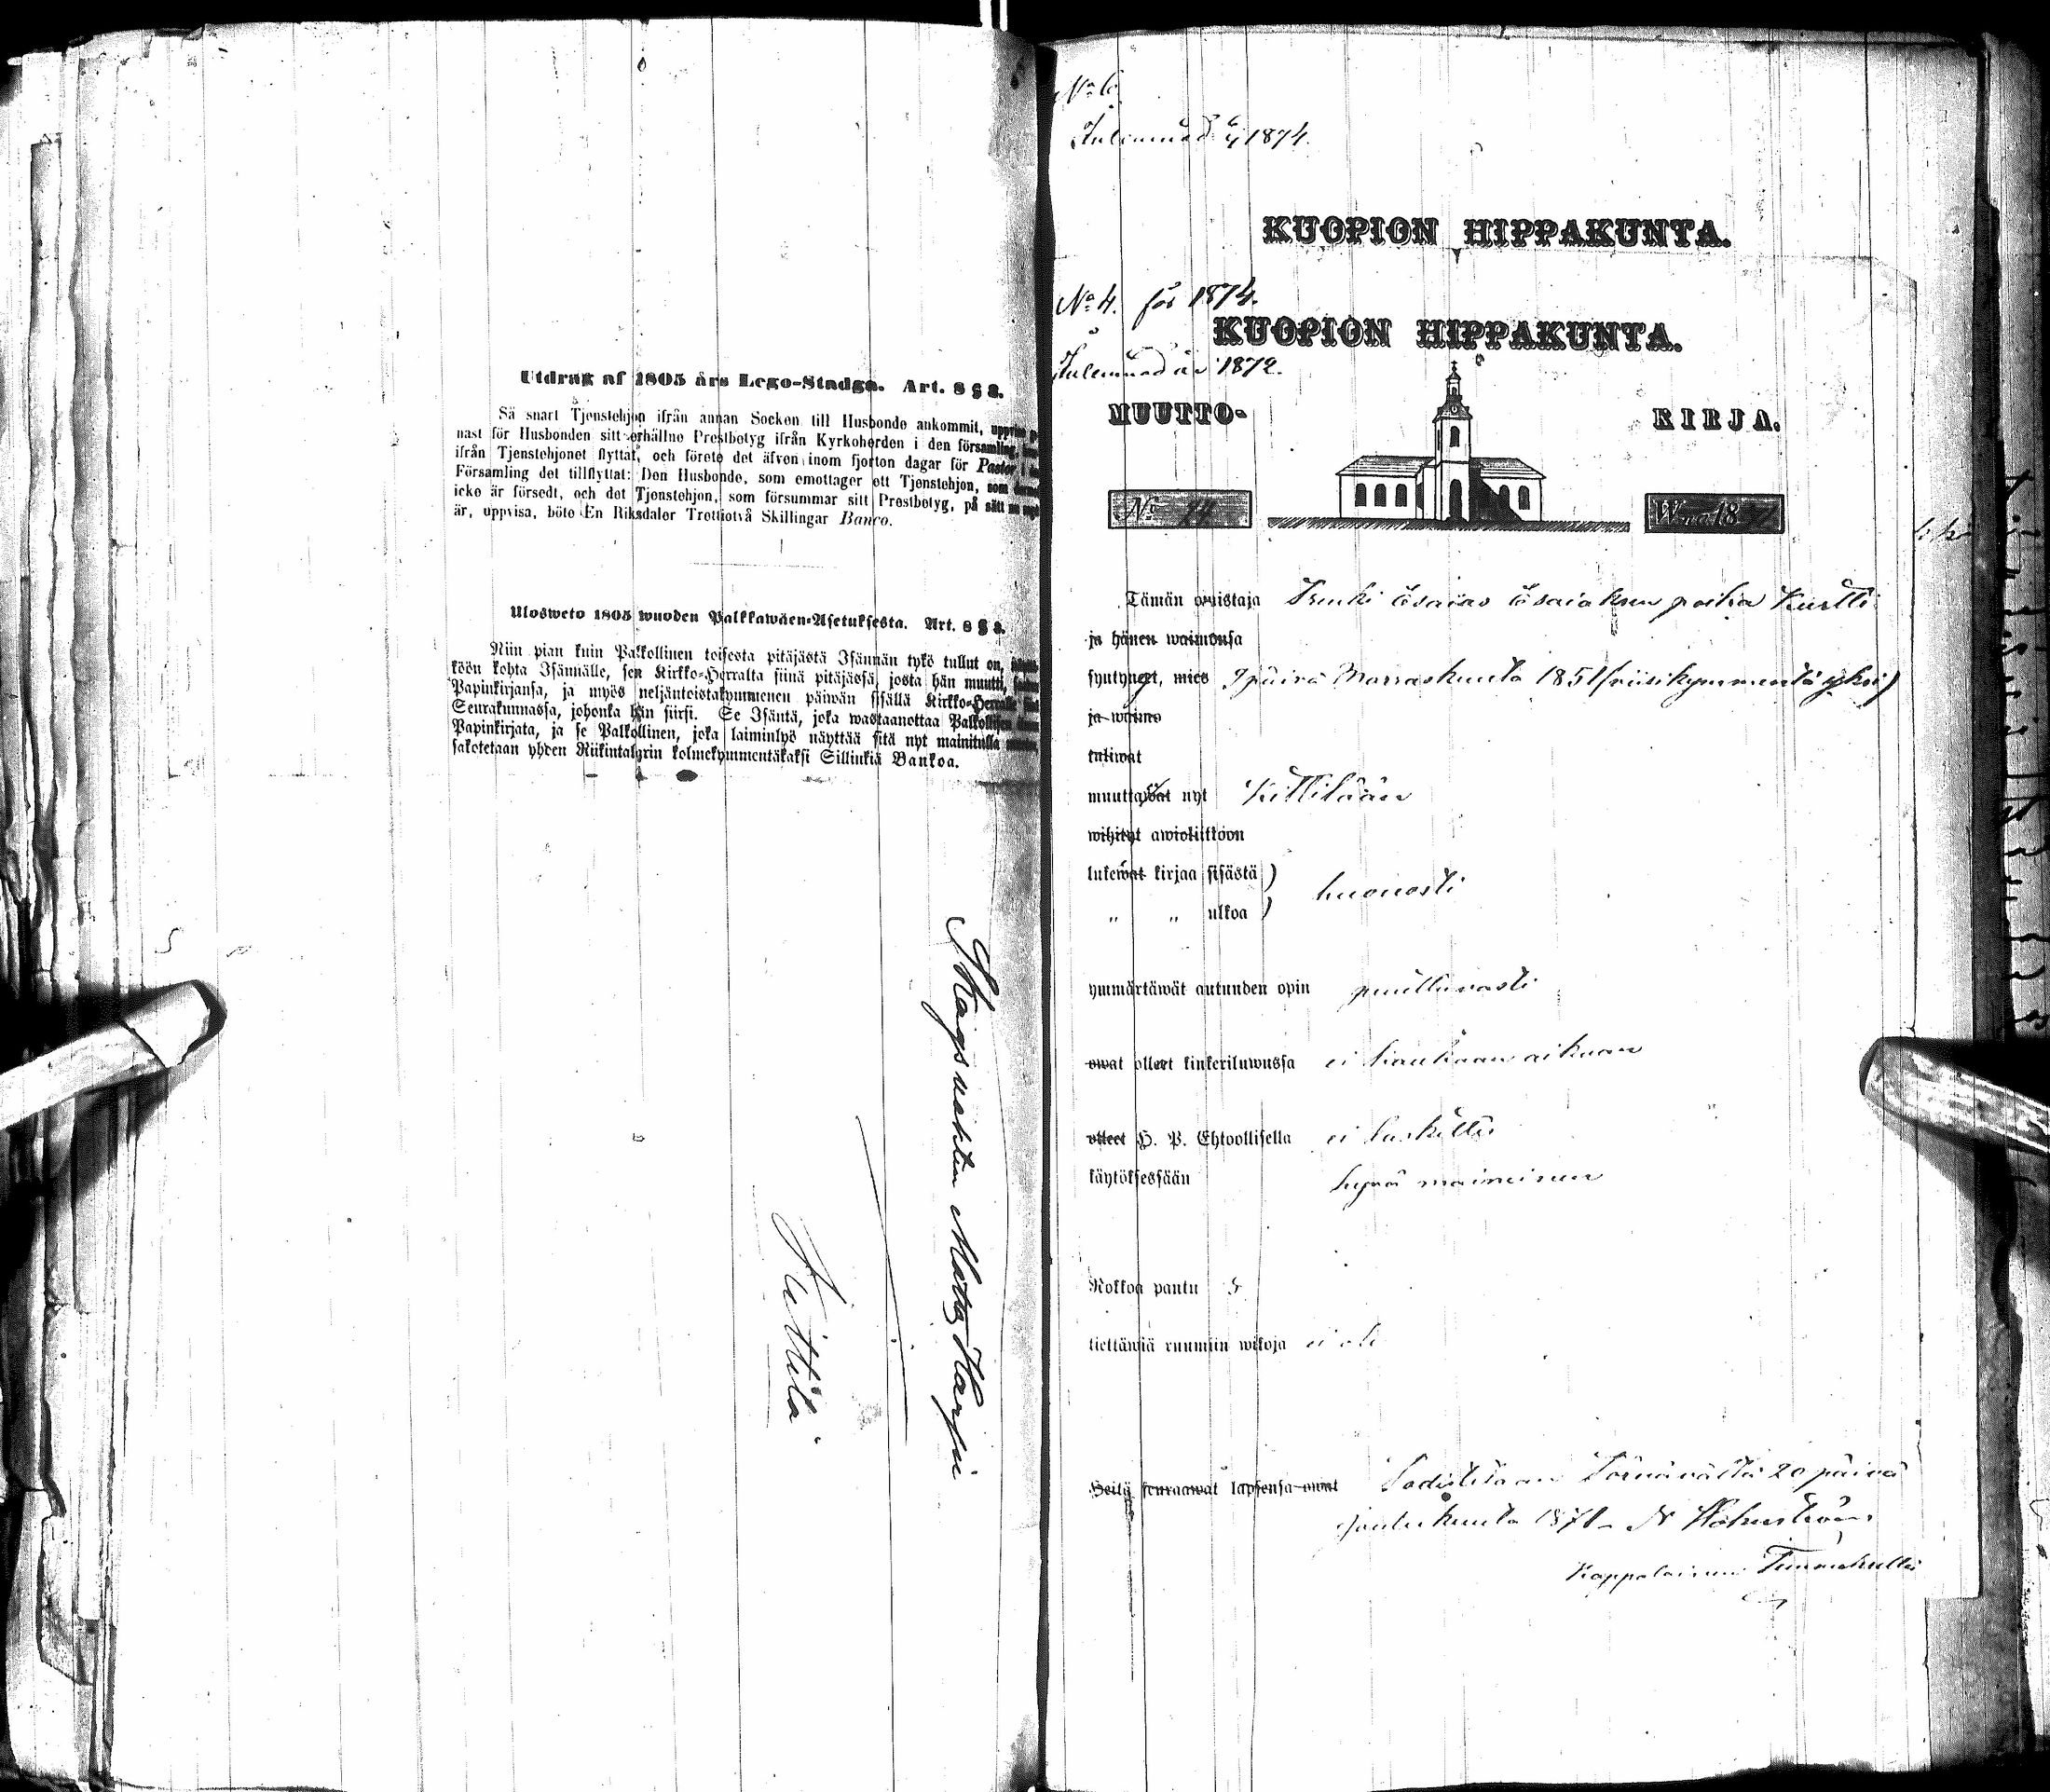 Utdrag af 1805 års Lego-Stadga. Art. 8 § 8.
Så snart Tjenstehjon ifrån annan Socken till Husbonde ankommit, uppvise
nast för Husbonden sitt erhållne Prestbetyg ifrån Kyrkoherden i den församling,
ifrån Tjenstehjonet flyttat, och förete det äfven inom fjorton dagar för Pastor i
Församling det tillflyttat: Den Husbonde, som emottager ett Tjenstehjon, som
icke är försedt, och det Tjenstehjon, som försummar sitt Prestbetyg, på sätt
är, uppvisa, böte En Riksdaler Trettiotvå Skillingar Banco.
Ulosweto 1805 wuoden Palkkawäen-Asetuksesta. Art. 8 § 8.
Niin pian kuin Palkollinen toisesta pitäjästä Isännän tykö tullut on,
köön kohta Isännälle, sen Kirkko-Herralta siinä pitäjässä, josta hän muutti,
Papinkirjansa, ja myös neljäntoistakymmenen päiwän sisällä Kirkko-Herralle
Seurakunnassa, johonka hän siirsi. Se Isäntä, joka wastaanottaa Palkollisen
Papinkirjata, ja se Palkollinen, joka laiminlyö näyttää sitä nyt mainitulla
sakotetaan yhden Riikintalarin kolmekymmentäkaksi Sillinkiä Bankoa.
Kittilä
No 6
1874.
KUOPION HIPPAKUNTA.
No 4. för 1874.
KUOPION HIPPAKUNTA.
1872.
MUUTTO- KIRJA.
No W:na 18
Tämän omistaja Renki Esaias Esaiaksen poika Kurtti
ja hänen waimonsa
syntynet, mies 9 päivä Marraskuuta 1851 (viisikymmentä yksi)
ja waimo
tuliwat
muuttawat nyt Kittilään
wihityt awioliittoon
lukewat kirjaa sisästä )
„ „ ulkoa ) huonosti
ymmärtäwät autuuden opin puuttuvasti
owat olleet kinkeriluwussa ei kaukaan aikaan
olleet H. P. Ehtoollisella ei
käytöksessään hyvä maineinen
Rokkoa pantu
tiettäwiä ruumiin wikoja ei ole
Heitä seuraawat lapsensa owat Todistetaan 20 päivä
Joulukuuta 1871
Kappalainen